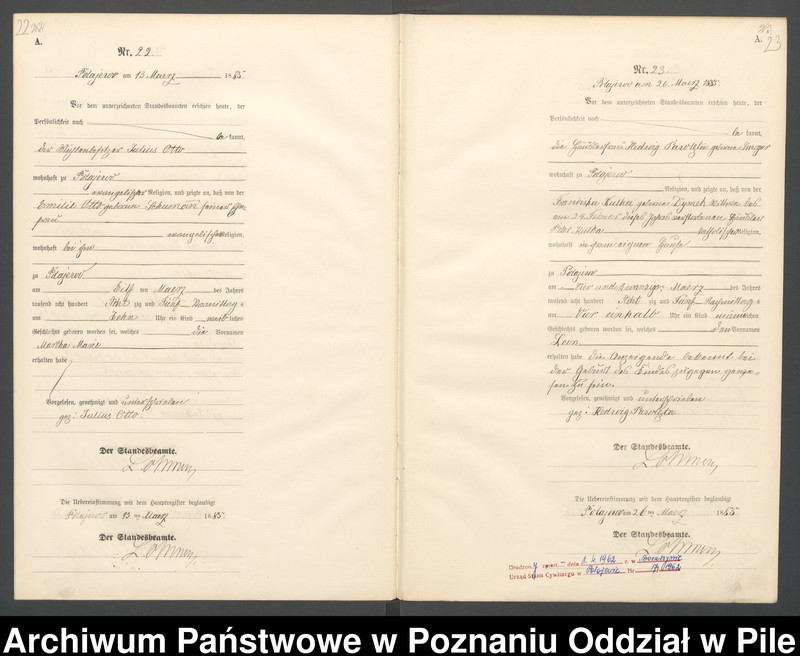 22
A.
Nr. 22.
Polajewo am 13 Maerz 1885
Vor dem unterzeichneten Standesbeamten erschien heute, der
Persönlichkeit nach
be kannt,
der Julius Otto
wohnhaft zu Polajewo
evangelischer Religion, und zeigte an, daß von der
Emilie Otto geborene Schumann seiner Ehe-
frau
evangelischer Religion,
wohnhaft bei ihm
zu Polajewo
am Elf ten Maerz des Jahres
tausend acht hundert Acht zig und Fünf Vormittag s
um Zehn Uhr ein Kind weib lichen
Geschlechts geboren worden sei, welches die Vornamen
Martha Marie
erhalten habe
Vorgelesen, genehmigt und unterschrieben
gez: Julius Otto.
Der Standesbeamte.
Die Uebereinstimmung mit dem Hauptregister beglaubigt
Polajewo am 13 ten Maerz 1885
Der Standesbeamte.
A.
23
Nr. 23.
Polajewo am 26 Maerz 1885.
Vor dem unterzeichneten Standesbeamten erschien heute, der
Persönlichkeit nach
be kannt,
die Hedwig geborene
wohnhaft zu Polajewo
Religion, und zeigte an, daß von der
geborene Wittwe des
am 24 dieses Jahres verstorbenen
Peter katholischer Religion,
wohnhaft in ihrem eignen Hause
zu Polajewo
am Vier und zwanzigs ten Maerz des Jahres
tausend acht hundert Acht zig und Fünf Nachmittag s
um Vier einhalb Uhr ein Kind männ lichen
Geschlechts geboren worden sei, welches den Vornamen
Leon
erhalten habe die Anzeigende bekennt bei
der Geburt des Kindes zugegen gewe-
sen zu sein.
Vorgelesen, genehmigt und unterschrieben
gez: Hedwig
Der Standesbeamte.
Die Uebereinstimmung mit dem Hauptregister beglaubigt
Polajewo am 26 ten Maerz 1885
Der Standesbeamte.
dnia 1.4.1962 r. w
Urząd Stanu Cywilnego w Połajewie Nr. 1962
Archiwum Państwowe w Poznaniu Oddział w Pile